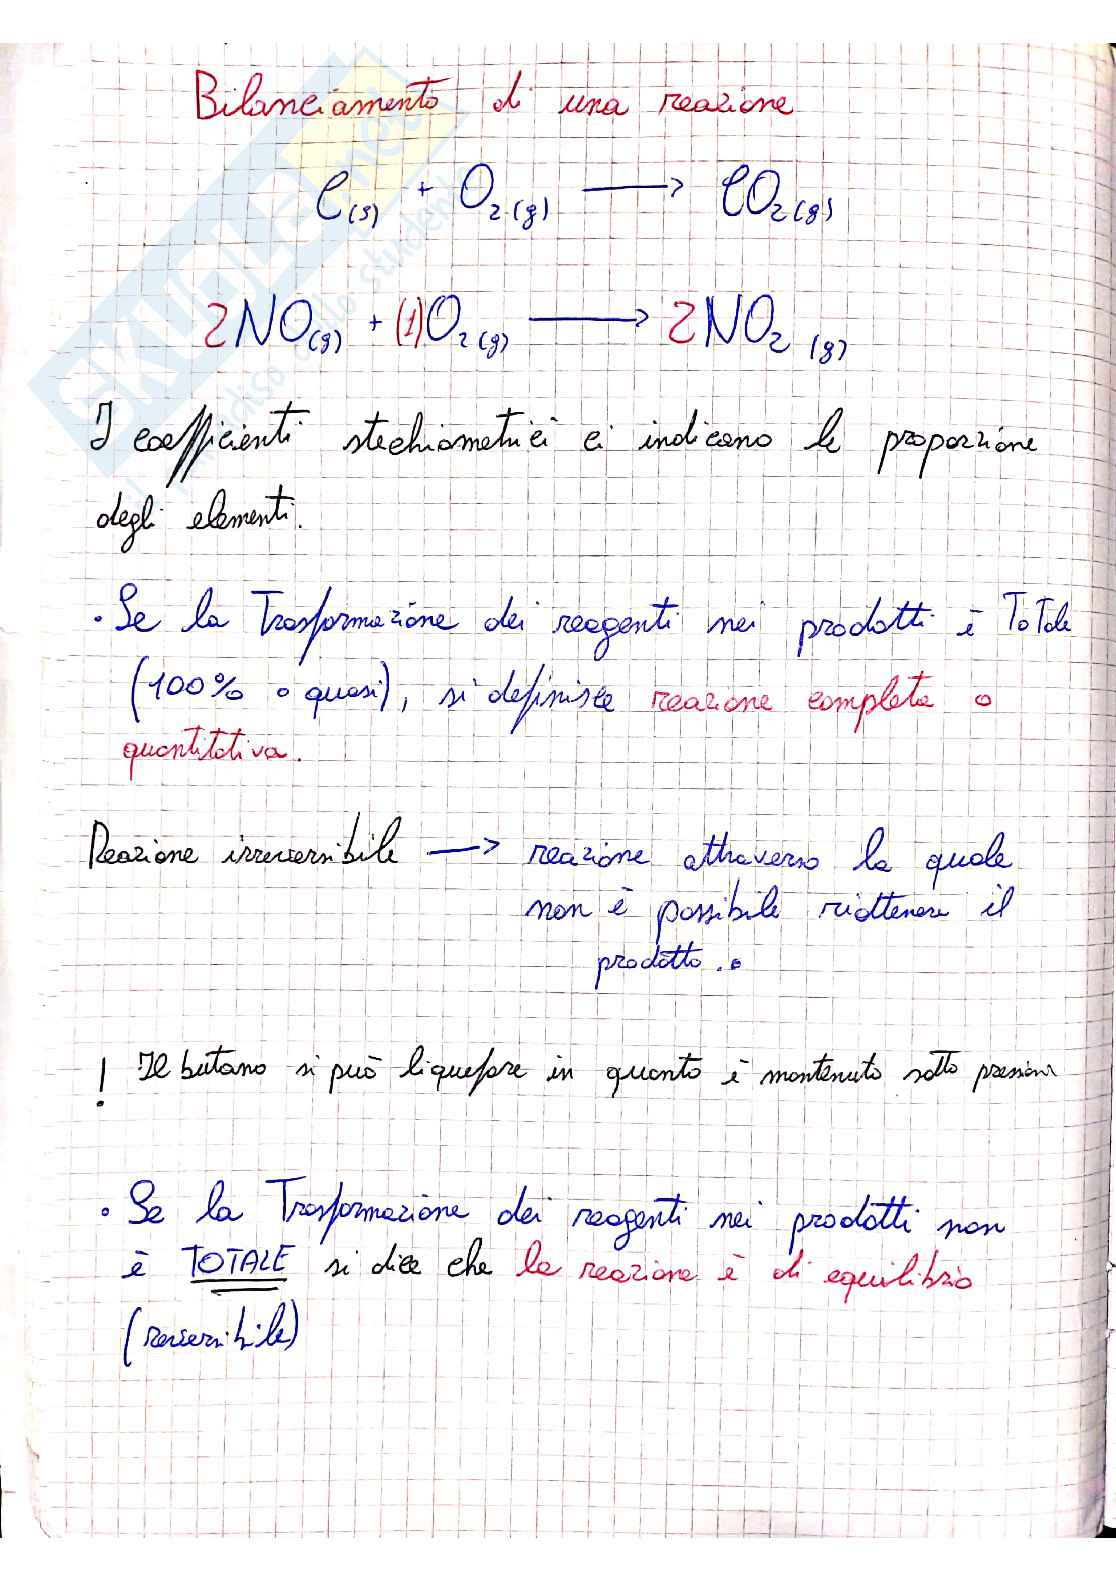 Bilanciamento di una reazione
C(s) + O2(g) → CO2(g)
2NO(g) + (1)O2(g) → 2NO2(g)
I coefficienti stechiometrici ci indicano le proporzione
degli elementi.
• Se la Trasformazione dei reagenti nei prodotti è ToTale
(100% o quasi), si definisce reazione completa o
quantitativa.
Reazione irreversibile → reazione attraverso la quale
non è possibile riottenere il
prodotto.
! Il butano si può liquefare in quanto è mantenuto sotto pressione
• Se la Trasformazione dei reagenti nei prodotti non
è TOTALE si dice che la reazione è di equilibrio
(reversibile)
SKUOLA.net